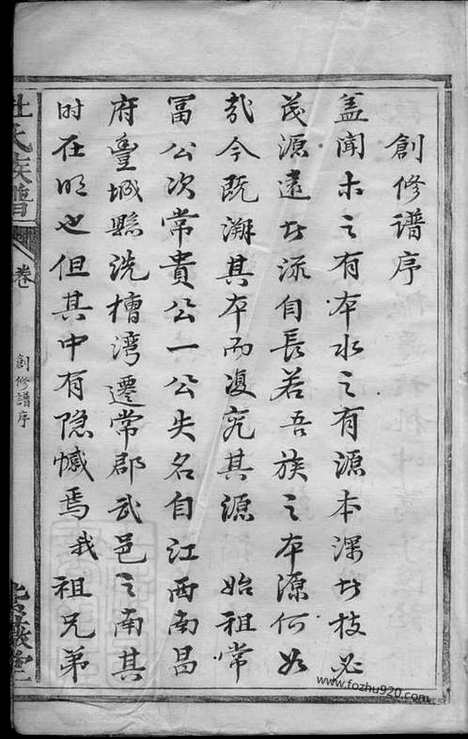 創修譜序
蓋聞木之有本水之有源本深者枝必
茂源遠者流自長若吾族之本源何如
哉今既溯其本而復究其源 始祖常
富公次常貴公一公失名自江西南昌
府豐城縣洗槽灣遷常郡武邑之南其
时在明也但其中有隐憾焉我祖兄弟
杜氏族譜
卷
創修譜序
www.fozhu920.com